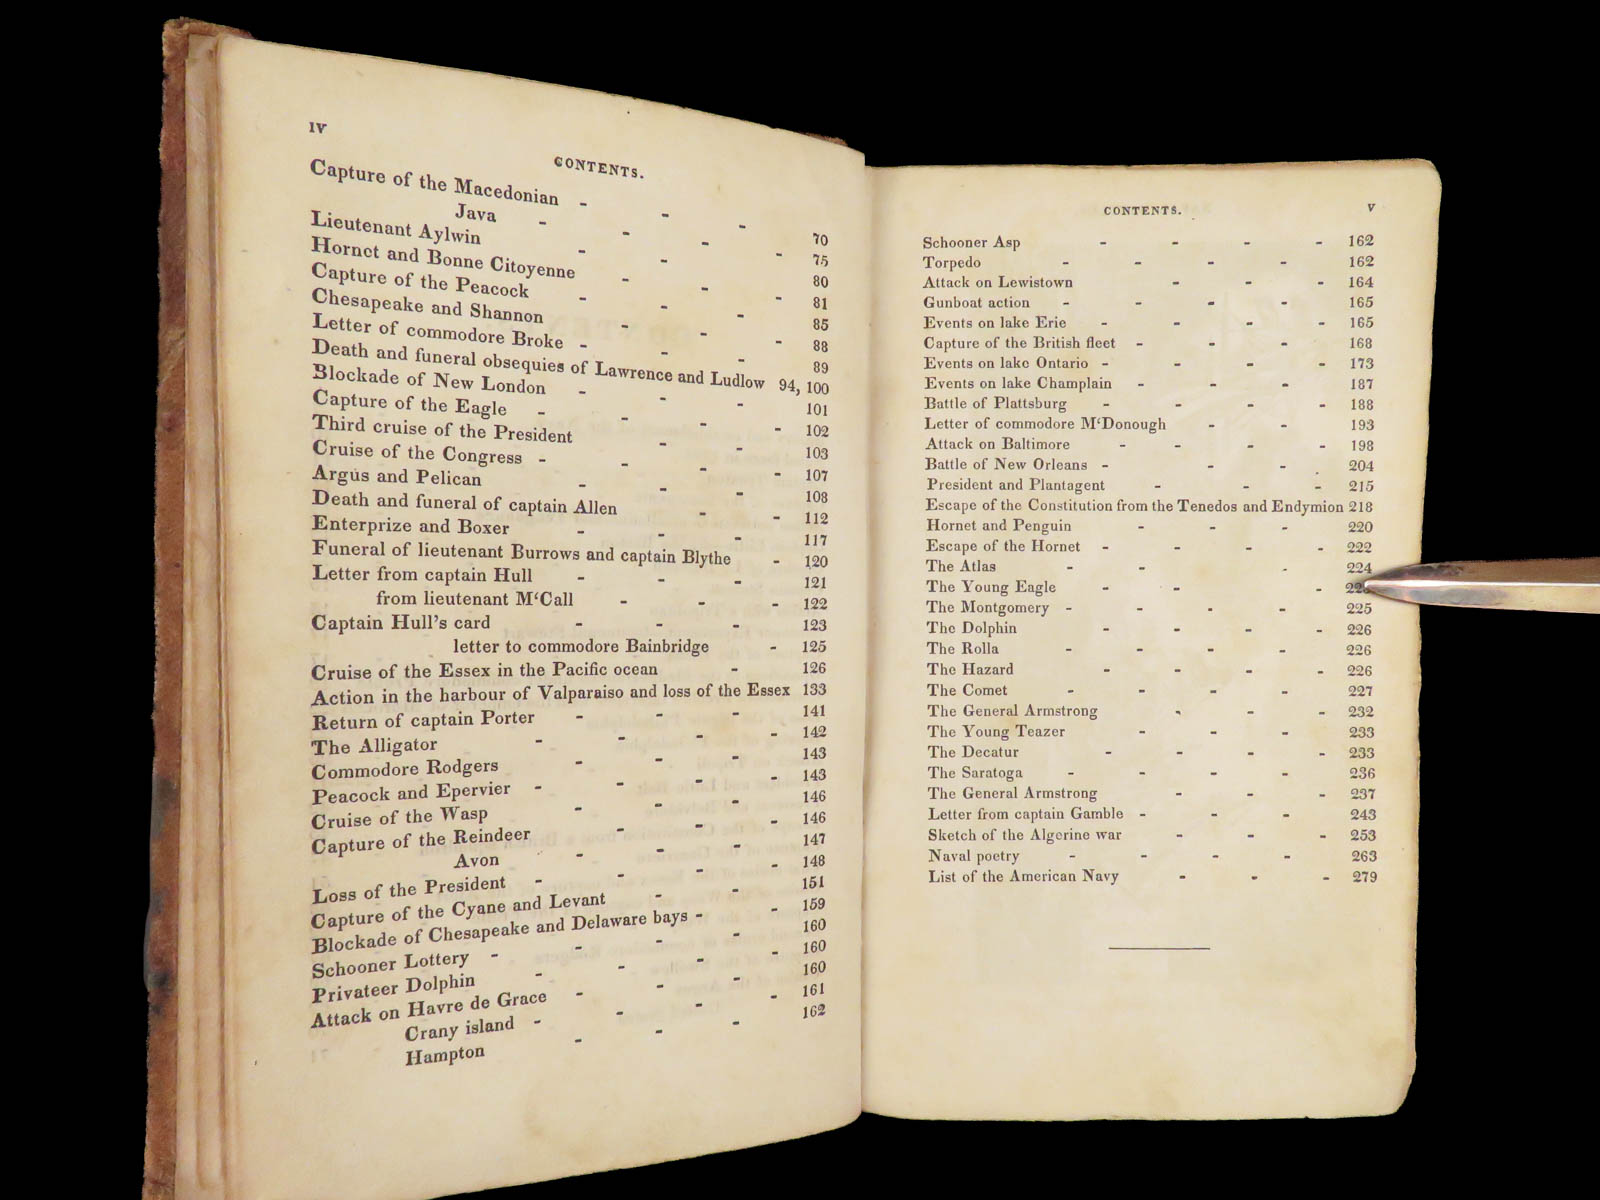 IV
CONTENTS.
Capture of the Macedonian - - - 70
Java - - - - 75
Lieutenant Aylwin - - - 80
Hornet and Bonne Citoyenne - - - 81
Capture of the Peacock - - - 85
Chesapeake and Shannon - - - 88
Letter of commodore Broke - - - 89
Death and funeral obsequies of Lawrence and Ludlow 94, 100
Blockade of New London - - - 101
Capture of the Eagle - - - - 102
Third cruise of the President - - 103
Cruise of the Congress - - - - 107
Argus and Pelican - - - 108
Death and funeral of captain Allen - - 112
Enterprize and Boxer - - - 117
Funeral of lieutenant Burrows and captain Blythe - 120
Letter from captain Hull - - - 121
from lieutenant M‘Call - - - 122
Captain Hull's card - - - 123
letter to commodore Bainbridge - 125
Cruise of the Essex in the Pacific ocean - 126
Action in the harbour of Valparaiso and loss of the Essex 133
Return of captain Porter - - - 141
The Alligator - - - - 142
Commodore Rodgers - - - 143
Peacock and Epervier - - - - 143
Cruise of the Wasp - - - 146
Capture of the Reindeer - - - 146
Avon - - - 147
Loss of the President - - - - 148
Capture of the Cyane and Levant - - 151
Blockade of Chesapeake and Delaware bays - - 159
Schooner Lottery - - - - 160
Privateer Dolphin - - - - 160
Attack on Havre de Grace - - - 160
Crany island - - - - 161
Hampton - - - 162
CONTENTS.
V
Schooner Asp - - - - 162
Torpedo - - - - 162
Attack on Lewistown - - - 164
Gunboat action - - - - 165
Events on lake Erie - - - - 165
Capture of the British fleet - - - 168
Events on lake Ontario - - - - 173
Events on lake Champlain - - - 187
Battle of Plattsburg - - - - 188
Letter of commodore M‘Donough - - 193
Attack on Baltimore - - - - 198
Battle of New Orleans - - - . 204
President and Plantagent - - - 215
Escape of the Constitution from the Tenedos and Endymion 218
Hornet and Penguin - - - 220
Escape of the Hornet - - - - 222
The Atlas - - - 224
The Young Eagle - - -
The Montgomery - - - - 225
The Dolphin - - - - 226
The Rolla - - - - 226
The Hazard - - - - 226
The Comet - - - - 227
The General Armstrong - - - 232
The Young Teazer - - - 233
The Decatur - - - - 233
The Saratoga - - - - 236
The General Armstrong - - - 237
Letter from captain Gamble - - - 243
Sketch of the Algerine war - - - 253
Naval poetry - - - - 263
List of the American Navy - - - 279